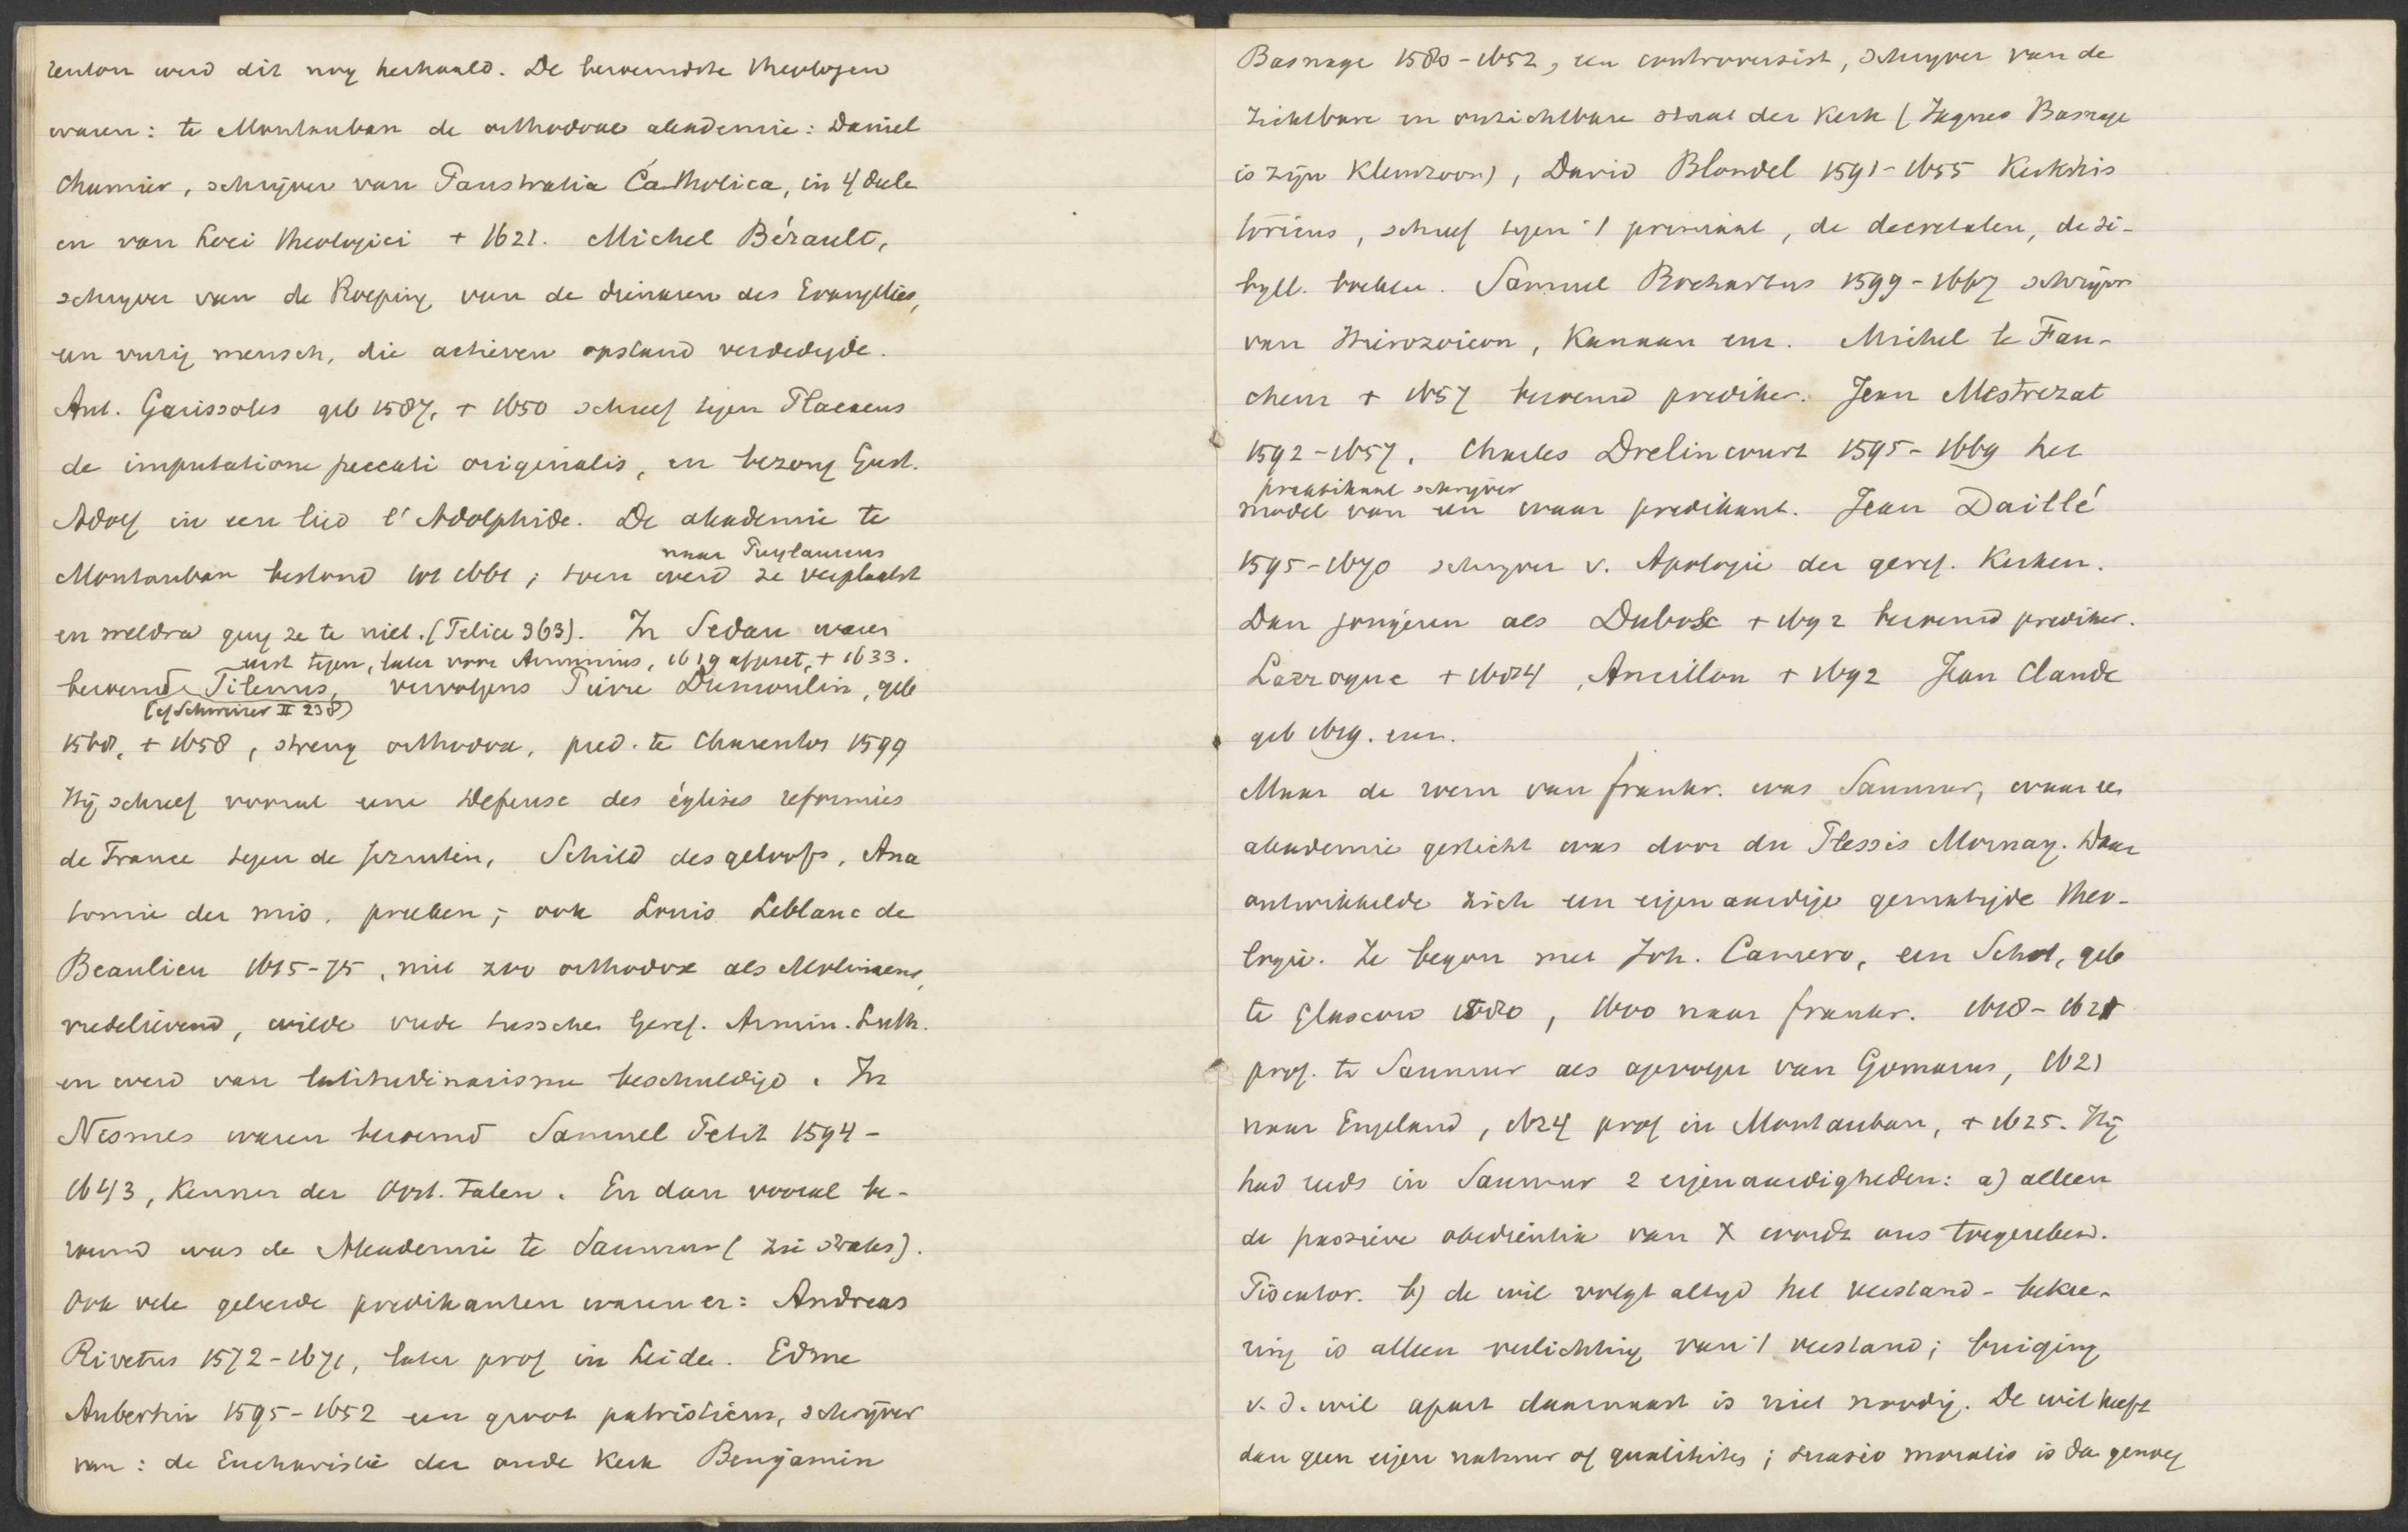 renton werd dit nog herhaald. De beroemdste theologen
waren: te Montauban de orthodoxe akademie: Daniel
Chamier, schrijver van Panstratia Catholica, in 4 deele
en van Loci theologici + 1621. Michel Bérault,
schrijver van de Roeping van de dienaren des Evangelies,
een vurig mensch, die actieven opstand verdedigde.
Ant. Garissoles geb 1587, + 1650 schreef tegen Placaeus
de imputatione peccati originalis, en bezong Gust.
Adolf in een lied l'Adolphide. De akademie te
naar Puylaurens
Montauban bestond tot 1661; toen werd ze verplaatst
en weldra ging ze te niet. (Felice 363). In Sedan waren
eerst tegen, later voor Arminius, 1619 afgezet, + 1633.
beroemd Tilenus, vervolgens Pierre Dumoulin, geb
(cf Schweizer II 238)
1568, + 1658, streng orthodox, pred. te Charenton 1599
Hij schreef vooral eene Defense des églises reformées
de France tegen de Jezuiten, Schild des geloofs, Ana
tomie der mis. preeken; ook Louis Leblanc de
Beaulieu 1615-75, niet zoo orthodox als Molinaeus,
vredelievend, wilde vrede tusschen Geref. Armin. Luth.
en werd van latitudinarisme beschuldigd. In
Nismes waren beroemd Samuel Petit 1594-
1643, kenner der Oost. talen. En dan vooral be-
roemd was de Akademie te Saumur (zie straks).
Ook vele geleerde predikanten waren er: Andreas
Rivetus 1572-1671, later prof in Leiden. Edme
Aubertin 1595-1652 een groot patristicus, schrijver
van: de Eucharistie der oude Kerk Benjamin
Basnage 1580-1652, een controversist, schrijver van de
zichtbare en onzichtbare staat der Kerk (Jaques Basnage
is zijn kleinzoon), David Blondel 1591-1655 Kerkhis
toricus, schreef tegen 't primaat, de decretalen, de Si-
byll. boeken. Samuel Bochartus 1599-1667 schrijver
van Hierozoicon, Kanaan enz. Michel le Fau-
cheur + 1657 beroemd prediker. Jean Mestrezat
1592-1657. Charles Drelincourt 1595-1669 het
praktikaal schrijver
model van een waar predikant. Jean Daillé
1595-1670 schrijver v. Apologie der geref. Kerken.
Dan jongeren als Dubosc + 1692 beroemd prediker.
Larroque + 1684, Ancillon + 1692 Jean Claude
geb 1619. enz.
Maar de roem van Frankr. was Saumur, waar een
akademie gesticht was door du Plessis Mornay. Daar
ontwikkelde zich een eigenaardige gematigde theo-
logie. Ze begon met Joh. Camero, een Schot, geb
te Glascow 1580, 1600 naar Frankr. 1618-1621
prof. te Saumur als opvolger van Gomarus, 1621
naar Engeland, 1624 prof in Montauban, + 1625. Hij
had reeds in Saumur 2 eigenaardigheden: a) alleen
de passieve obedientia van X wordt ons toegerekend.
Piscator. b) de wil volgt altijd het verstand - bekee-
ring is alleen verlichting van 't verstand; buiging
v. d. wil apart daarnaast is niet noodig. De wil heeft
dan geen eigen natuur of qualiteiten; suasio moralis is dan genoeg